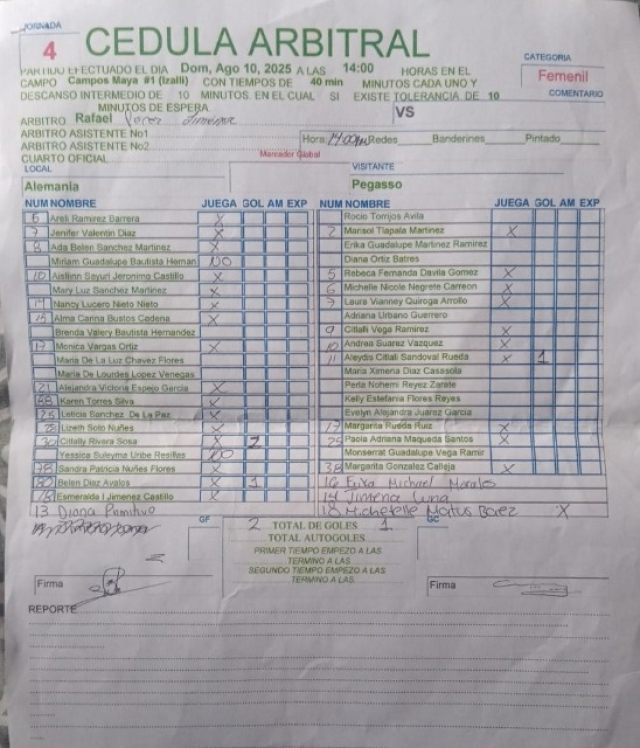 JORNADA
4
CEDULA ARBITRAL
PARTIDO EFECTUADO EL DIA Dom, Ago 10, 2025 A LAS 14:00 HORAS EN EL
CAMPO Campos Maya #1 (Izalli) CON TIEMPOS DE 40 min MINUTOS CADA UNO Y
DESCANSO INTERMEDIO DE 10 MINUTOS. EN EL CUAL SI EXISTE TOLERANCIA DE 10
MINUTOS DE ESPERA
CATEGORIA
Femenil
COMENTARIO
VS
ARBITRO Rafael
ARBITRO ASISTENTE No1
ARBITRO ASISTENTE No2
CUARTO OFICIAL
Hora 14:00 Redes Banderines Pintado
Marcador Global
LOCAL
Alemania
NUM NOMBRE JUEGA GOL AM EXP
6 Areli Ramirez Barrera X
7 Jenifer Valentin Diaz X
8 Ada Belen Sanchez Martinez X
Miriam Guadalupe Bautista Hernan
10 Aislinn Sayuri Jeronimo Castillo X
Mary Luz Sanchez Martinez X
Nancy Lucero Nieto Nieto X
15 Alma Carina Bustos Cadena X
Brenda Valery Bautista Hernandez
17 Monica Vargas Ortiz X
Maria De La Luz Chavez Flores
Maria De Lourdes Lopez Venegas
21 Alejandra Victoria Espejo Garcia X
Karen Torres Silva X
25 Leticia Sanchez De La Paz X
Lizeth Soto Nuñes X
30 Citlally Rivera Sosa X 2
Yessica Suleyma Uribe Resillas
Sandra Patricia Nuñes Flores X
80 Belen Diaz Avalos X 1
Esmeralda I Jimenez Castillo X
13 Diana
VISITANTE
Pegasso
NUM NOMBRE JUEGA GOL AM EXP
Rocio Torrijos Avila
2 Marisol Tlapala Martinez X
Erika Guadalupe Martinez Ramirez
Diana Ortiz Batres
5 Rebeca Fernanda Davila Gomez X
6 Michelle Nicole Negrete Carreon X
7 Laura Vianney Quiroga Arrollo X
Adriana Urbano Guerrero
9 Citlalli Vega Ramirez X
10 Andrea Suarez Vazquez X
11 Aleydis Citlali Sandoval Rueda X 1
Maria Ximena Diaz Casasola
Perla Nohemi Reyez Zarate
Kelly Estefania Flores Reyes
Evelyn Alejandra Juarez Garcia
17 Margarita Rueda Ruiz X
25 Paola Adriana Maqueda Santos X
Monserrat Guadalupe Vega Ramir
38 Margarita Gonzalez Calleja X
16 Erika Michael Morales
14 Jimena Luna
18 X
GF 2 TOTAL DE GOLES 1 GC
TOTAL AUTOGOLES
PRIMER TIEMPO EMPEZO A LAS
TERMINO A LAS
SEGUNDO TIEMPO EMPEZO A LAS
TERMINO A LAS
Firma
Firma
REPORTE